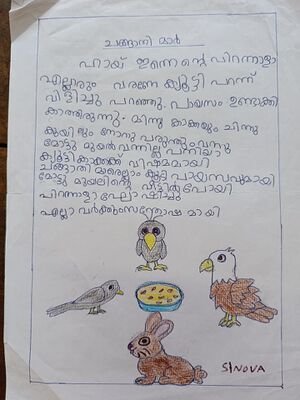 ചങ്ങാതി മാർ
ഹായ് ഇന്നെന്റെ പിറന്നാളാ
എല്ലാരും വരണേ കുട്ടി പറന്ന്
വിളിച്ചു പറഞ്ഞു. പായസം ഉണ്ടാക്കി
കാത്തിരുന്നു. മിന്നു കാക്കയും ചിന്നു
കുയിലും നോനു പരുന്തും വന്നു
മോട്ടു മുയൽ വന്നില്ല പനിയാ
കുട്ടികാക്കക്ക് വിഷമമായി
ചങ്ങാതി മാരെല്ലാം കൂട്ടി പായസവുമായി
മോട്ടു മുയലിന്റെ വീട്ടിൽ പോയി
പിറന്നാളാഘോഷിച്ചു
എല്ലാ വർക്കും സന്തോഷ മായി
SINOVA